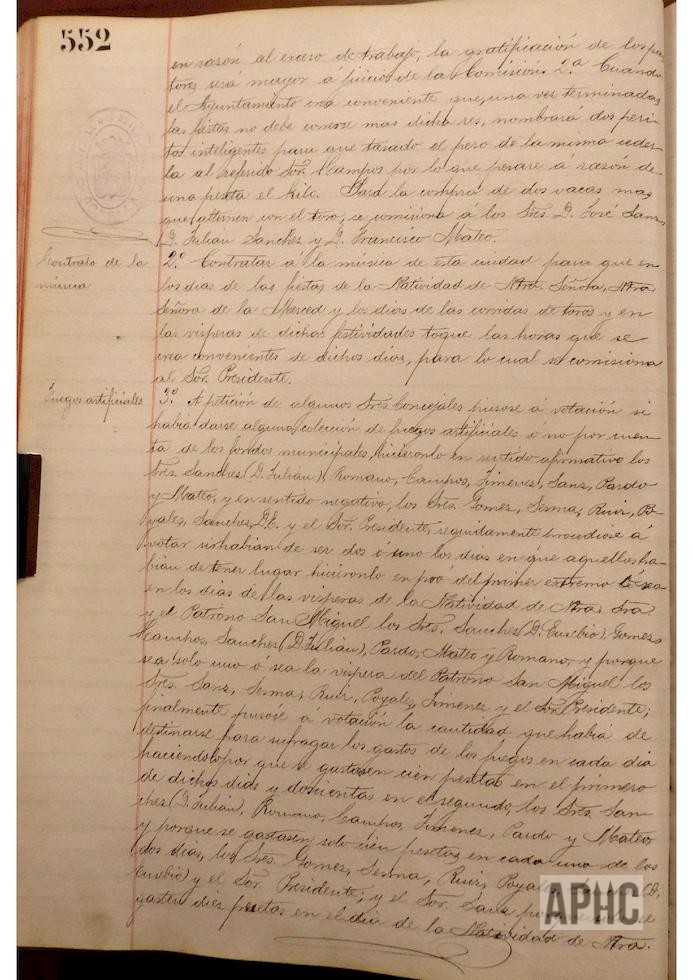 552
en rasón al exceso de trabajo, la gratificación de los pas-
tores será mayor á juicio de la Comisión. 2.ª Cuando
el Ayuntamiento crea conveniente que, una vez terminadas
las fiestas no debe correrse mas dicha res, nombrará dos peri-
tos inteligentes para que tasado el peso de la misma ceder-
la al referido Sor. Campos por lo que pesare á rasón de
una peseta el Kilo. Para la compra de dos vacas mas
que alternen con el toro, se comisiona á los Sres. D. José Sanz,
D. Julian Sanches y D. Francisco Mateo.
Contrato de la
música
2.º Contratar á la música de esta ciudad para que en
los dias de las fiestas de la Natividad de Ntra. Señora, Ntra
Señora de la Merced y los dias de las corridas de toros y en
las visperas de dichas festividades toque las horas que se
crea convenientes de dichos dias, para lo cual se comisiona
al Sor. Presidente.
Fuegos artificiales
3.º A petición de algunos Sres. Concejales pusose á votación si
habia darse alguna colección de fuegos artificiales ó no por cuen-
ta de los fondos municipales, hicieronlo en sentido afirmativo los
Sres. Sanches (D. Julián), Romano, Campos, Jimenes, Sanz, Pardo
y Mateo, y en sentido negativo, los Sres. Gomes, Serma, Ruiz, Po-
yales, Sanches, D. E. y el Sor. Presidente, seguitamente procediose á
votar si habian de ser dos ó uno los dias en que aquellos ha-
bian de tener lugar hicieronlo en pró del primer extremo ó sea
en los dias de las visperas de la Natividad de Ntra. Sra
y el Patrono San Miguel los Sres. Sanches (D. Eusebio), Gomes,
Campos, Sanches (D. Julián), Pardo, Mateo y Romano, y porque
sea solo uno ó sea la vispera del Patrono San Miguel los
Sres. Sanz, Serma, Ruiz, Poyales, Jimenes y el Sor. Presidente;
finalmente pusose á votación la cantidad que habia de
destinarse para sufragar los gastos de los fuegos en cada dia
haciendolo por que se gastasen cien pesetas en el primero
de dichos dias y doscientas en el segundo, los Sres. San-
ches (D. Julian), Romano, Campos, Jimenes, Pardo y Mateo
y porque se gastasen solo cien pesetas en cada uno de los
dos dias, los Sres. Gomes, Serma, Ruiz, Poyales, (D.
Eusebio) y el Sor. Presidente; y el Sor. Sanz porque se
gasten diez pesetas en el dia de la Natividad de Ntra.
APHC